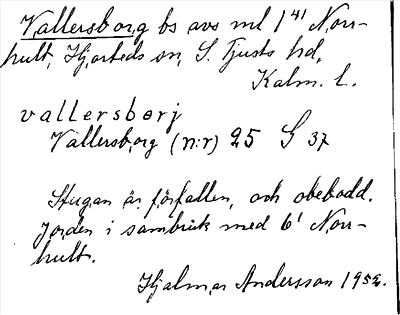 Vallersborg bs avs ml 1⁴¹ Norr-
hult, Hjorteds sn, S. Tjusts hd,
Kalm. l.
vallersbɵrj
Vallersborg (n:r) 25 G 37
Stugan är förfallen, och obebodd.
Jorden i sambruk med 6¹ Norr-
hult.
Hjalmar Andersson 1952.